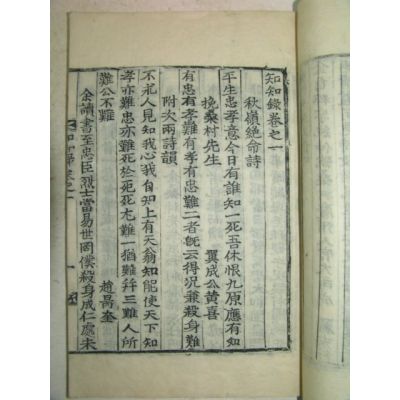 知知錄卷之一
秋嶺絶命詩
平生忠孝意今日有誰知一死吾休恨九原應有知
挽桑村先生
翼成公黃喜
有忠有孝難有孝有忠難二者旣云得況兼殺身難
附次兩詩韻
不求人見知我心我自知上有天翁知能使天下知
孝亦難忠亦難死於宛死尤難一猶難幷三難人所
難公不難
趙禼奎
余讀書至忠臣烈士當易世罔僕殺身成仁處未